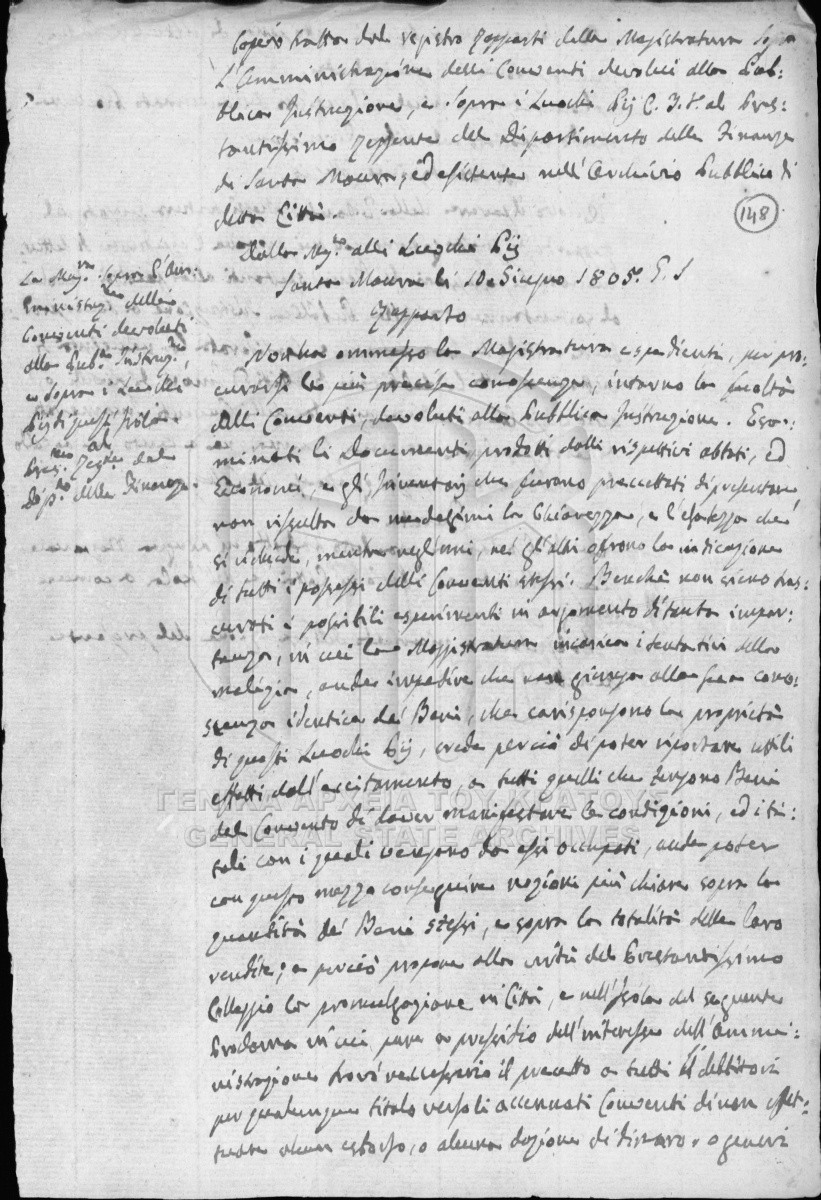 Copia tratta dal registro Rapporti della Magistratura sopra
L'Amministrazione delli Conventi devoluti alla Pub=
blica Instruzione, e sopra i Luochi Pij C. F. F. al Pres=
tantissimo Regente del Dipartimento delle Finanze
di Santa Maura, ed esistente nell'Archivio Pubblico di
detta Città.
148
Dalla Mag.to alli Luochi Pij
Santa Maura li 10 Giugno 1805. E. S
Rapporto
La Mag.ra sopra l'Am=
ministraz.ne delli
Conventi devoluti
alla Pub.ca Instruz.ne,
e sopra i Luochi
Pij di quest'Isola.
al
Pres.mo Reg.te del
Dip.to delle Finanze.
Non ha ommesso la Magistratura espedienti, per pro=
curarsi la più precisa conoscenza, intorno la facoltà
delli Conventi, devoluti alla Pubblica Instruzione. Esa=
minati li Documenti prodotti dalli rispettivi abbati, ed
Economi, e gli Inventarj che furono preccettati di presentare
non risulta da medesimi la Chiarezza, e l'esatezza che
si richiede, mentre negl'uni, nè gl'altri offrono la indicazione
di tutti i possessi delli Conventi stessi. Benchè non sieno tras=
curati i possibili esperimenti in argomento di tanta impor=
tanza, in cui la Magistratura incarica i tentativi della
malizia, onde impedire che non giunga alla sua cono=
scenza identica de' Beni, che carispongono la proprietà
di questi Luochi Pij, crede perciò di poter riportare utili
effetti dall'eccitamento, a tutti quelli che tengono Beni
del Convento di dover manifestare le condizioni, ed i ti=
toli con i quali vengono da essi occupati, onde poter
con questo mezzo conseguire nozioni più chiare sopra la
quantità de' Beni stessi, e sopra la totalità delle loro
rendite; e perciò propone alla virtù del Prestantissimo
Colleggio la promulgazione in Città, e nell'Isola del seguente
Proclama in cui pure a presidio dell'interesse dell'Ammi=
nistrazione trovò neccessario il precetto a tutti li debbitori
per qualunque titolo verso li accennati Conventi di non effet=
tuare alcun esborso, o alcuna dazione di dinaro, o generi
ΓΕΝΙΚΑ ΑΡΧΕΙΑ ΤΟΥ ΚΡΑΤΟΥΣ
GENERAL STATE ARCHIVES